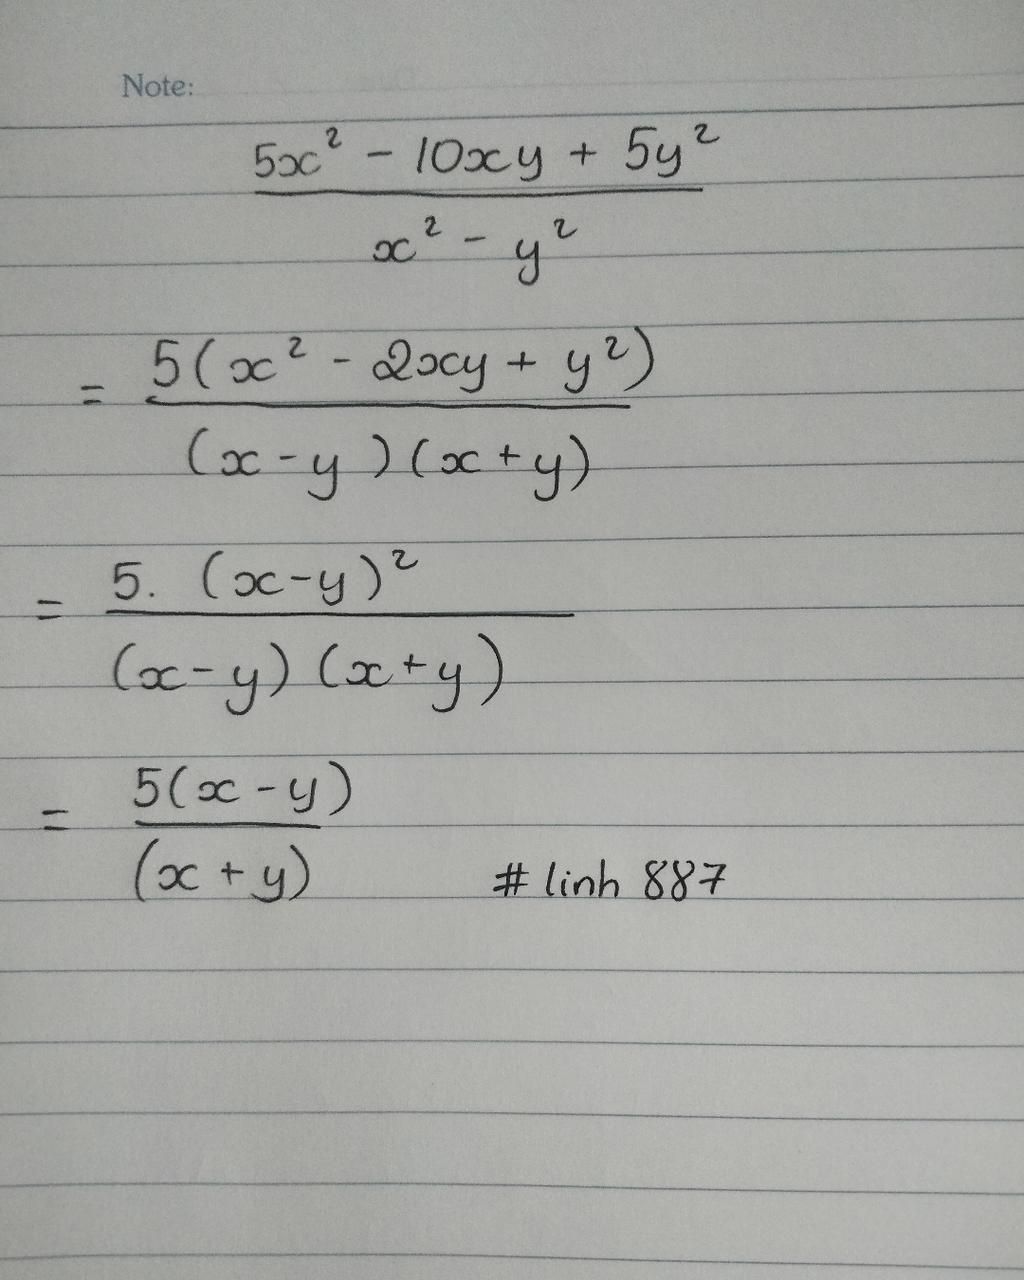 Note:
5x² - 10xy + 5y²
x² - y²
= 5(x² - 2xy + y²)
(x - y)(x + y)
= 5. (x-y)²
(x - y) (x + y)
= 5(x - y)
(x + y) # linh 887